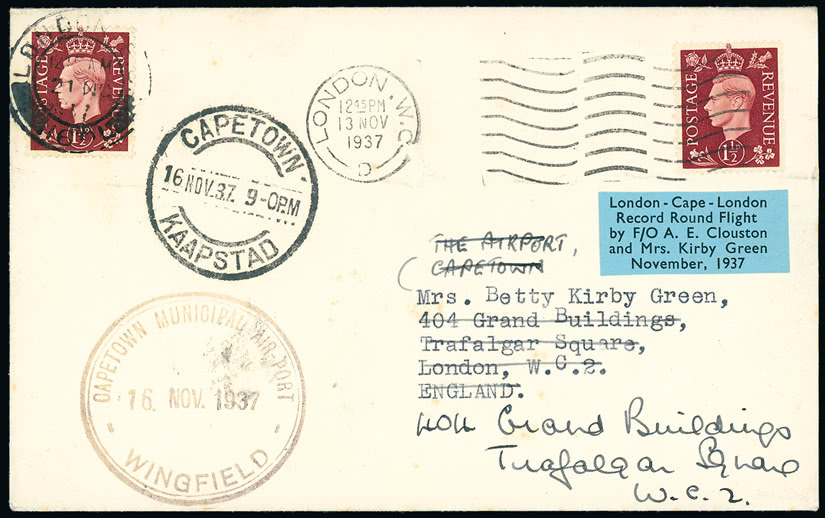 LONDON
21 NO
POSTAGE REVENUE
1½D
CAPETOWN
16 NOV. 37. 9-0PM
KAAPSTAD
LONDON. W.C.
12 15 PM
13 NOV
1937
C
POSTAGE REVENUE
1½D
London - Cape - London
Record Round Flight
by F/O A. E. Clouston
and Mrs. Kirby Green
November, 1937
THE AIRPORT,
CAPETOWN
Mrs. Betty Kirby Green,
404 Grand Buildings,
Trafalgar Square,
London, W.C.2.
ENGLAND.
404 Grand Buildings
Trafalgar Square
W.C.2.
CAPETOWN MUNICIPAL AIR-PORT
16. NOV. 1937
- WINGFIELD -